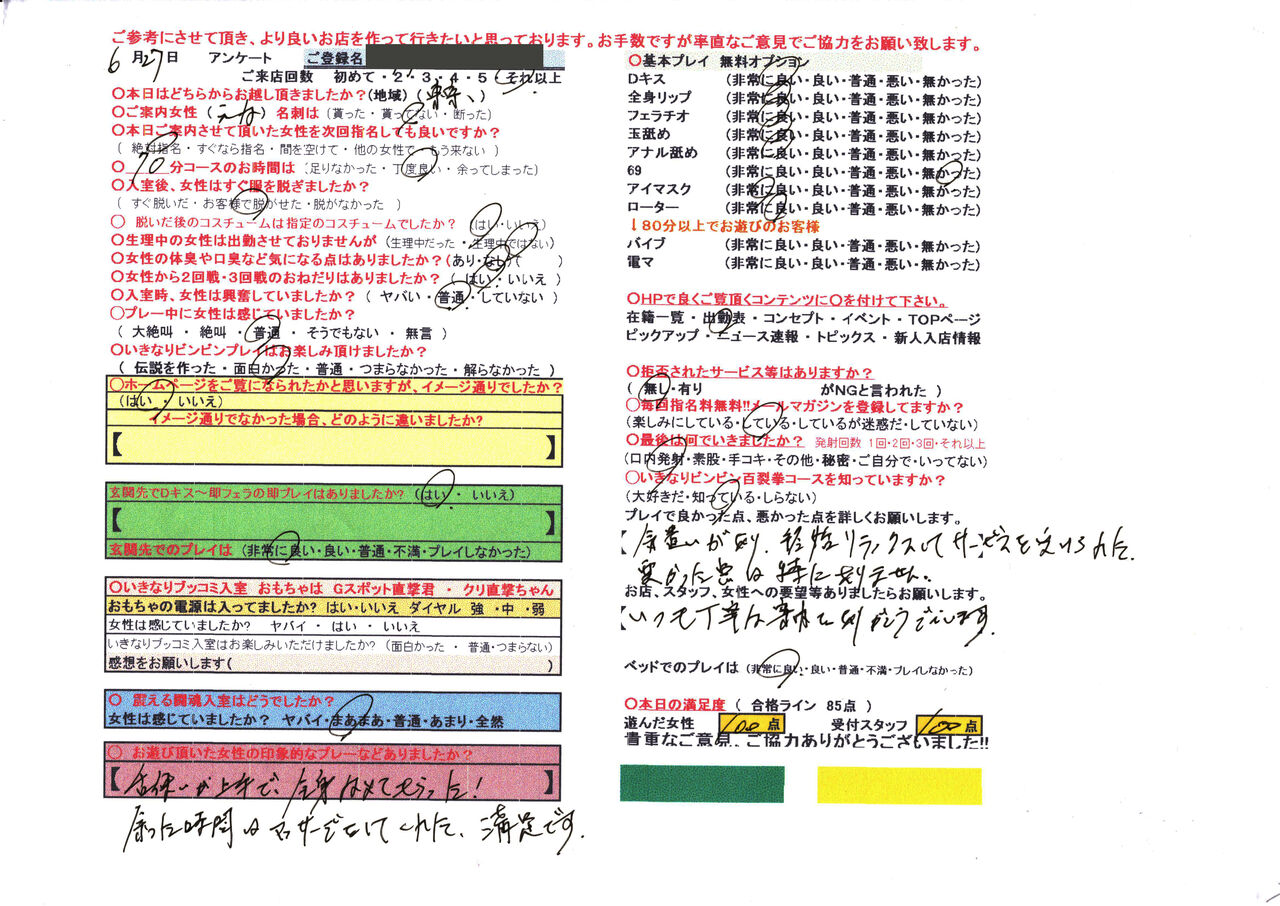 ご参考にさせて頂き、より良いお店を作って行きたいと思っております。お手数ですが率直なご意見でご協力をお願い致します。
6月27日 アンケート ご登録名
ご来店回数 初めて・2・3・4・5 それ以上
〇本日はどちらからお越し頂きましたか?(地域)( )
〇ご案内女性 ( ) 名刺は (貰った・貰ってない・断った)
〇本日ご案内させて頂いた女性を次回指名しても良いですか?
( 絶対指名・すぐなら指名・間を空けて・他の女性で・もう来ない )
〇 70分コースのお時間は (足りなかった・丁度良い・余ってしまった)
〇入室後、女性はすぐ服を脱ぎましたか?
( すぐ脱いだ・お客様で脱がせた・脱がなかった )
〇 脱いだ後のコスチュームは指定のコスチュームでしたか? (はい・いいえ)
〇生理中の女性は出勤させておりませんが (生理中だった・生理中ではない)
〇女性の体臭や口臭など気になる点はありましたか?(あり・なし)( )
〇女性から2回戦・3回戦のおねだりはありましたか? ( はい・いいえ )
〇入室時、女性は興奮していましたか? ( ヤバい・普通・していない )
〇プレー中に女性は感じていましたか?
( 大絶叫・絶叫・普通・そうでもない・無言 )
〇いきなりビンビンプレイはお楽しみ頂けましたか?
( 伝説を作った・面白かった・普通・つまらなかった・解らなかった )
〇ホームページをご覧になられたかと思いますが、イメージ通りでしたか?
(はい・いいえ)
イメージ通りでなかった場合、どのように違いましたか?
【 】
玄関先でDキス～即フェラの即プレイはありましたか? (はい・いいえ)
【 】
玄関先でのプレイは (非常に良い・良い・普通・不満・プレイしなかった)
〇いきなりブッコミ入室 おもちゃは Gスポット直撃君 ・ クリ直撃ちゃん
おもちゃの電源は入ってましたか? はい・いいえ ダイヤル 強・中・弱
女性は感じていましたか? ヤバイ・はい・いいえ
いきなりブッコミ入室はお楽しみいただけましたか? (面白かった・普通・つまらない)
感想をお願いします( )
〇 震える闘魂入室はどうでしたか?
女性は感じていましたか? ヤバイ・まあまあ・普通・あまり・全然
〇 お遊び頂いた女性の印象的なプレーなどありましたか?
【舌使いが上手で、全身なめてもらった!】
余った時間はマッサージをしてくれて、満足です.
〇基本プレイ 無料オプション
Dキス (非常に良い・良い・普通・悪い・無かった)
全身リップ (非常に良い・良い・普通・悪い・無かった)
フェラチオ (非常に良い・良い・普通・悪い・無かった)
玉舐め (非常に良い・良い・普通・悪い・無かった)
アナル舐め (非常に良い・良い・普通・悪い・無かった)
69 (非常に良い・良い・普通・悪い・無かった)
アイマスク (非常に良い・良い・普通・悪い・無かった)
ローター (非常に良い・良い・普通・悪い・無かった)
↓80分以上でお遊びのお客様
バイブ (非常に良い・良い・普通・悪い・無かった)
電マ (非常に良い・良い・普通・悪い・無かった)
〇HPで良くご覧頂くコンテンツに〇を付けて下さい。
在籍一覧・出勤表・コンセプト・イベント・TOPページ
ピックアップ・ニュース速報・トピックス・新人入店情報
〇拒否されたサービス等はありますか?
( 無し・有り がNGと言われた )
〇毎回指名料無料!!メールマガジンを登録してますか?
(楽しみにしている・している・しているが迷惑だ・していない)
〇最後は何でいきましたか? 発射回数 1回・2回・3回・それ以上
(口内発射・素股・手コキ・その他・秘密・ご自分で・いってない)
〇いきなりビンビン百裂拳コースを知っていますか?
(大好きだ・知っている・しらない)
プレイで良かった点、悪かった点を詳しくお願いします。
【気遣いがあり、リラックスしてサービスを受けられた.
悪かった点は特にありません.
お店、スタッフ、女性への要望等ありましたらお願いします。
【いつも丁寧な案内でありがとうございます.
ベッドでのプレイは (非常に良い・良い・普通・不満・プレイしなかった)
〇本日の満足度 ( 合格ライン 85点 )
遊んだ女性 100点 受付スタッフ 100点
貴重なご意見、ご協力ありがとうございました!!